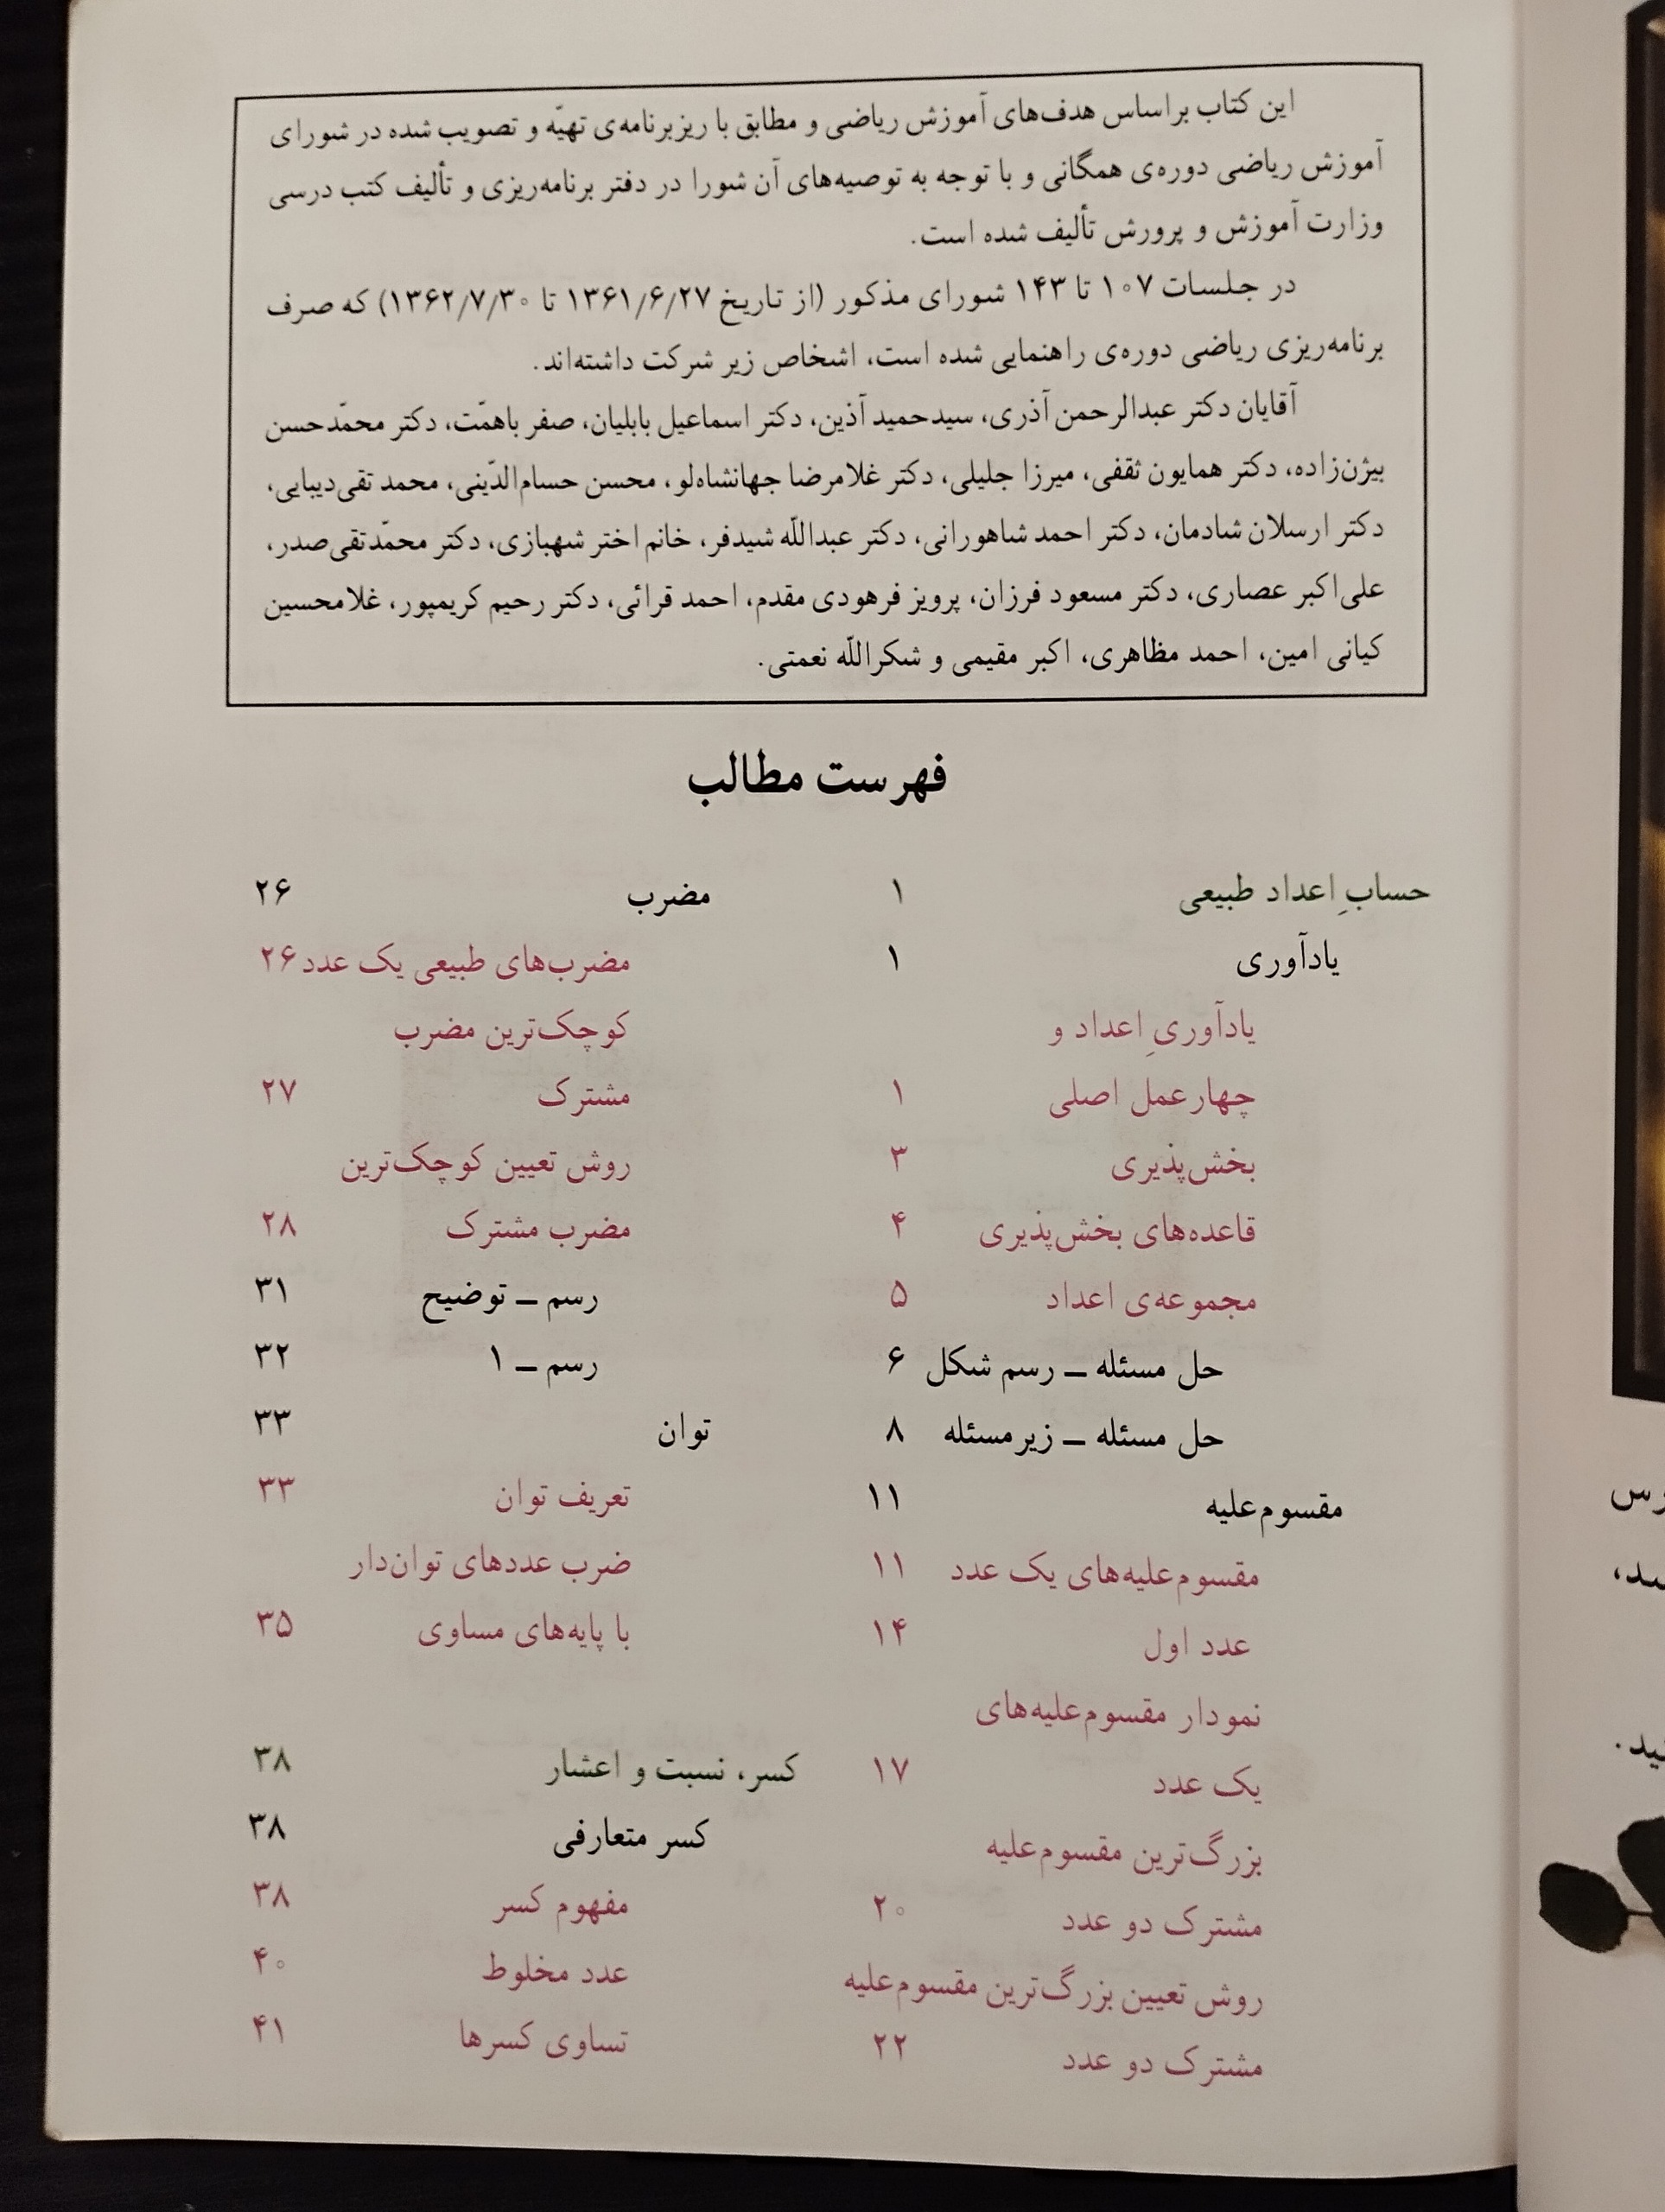 این کتاب براساس هدف‌های آموزش ریاضی و مطابق با ریزبرنامه‌ی تهیّه و تصویب شده در شورای
آموزش ریاضی دوره‌ی همگانی و با توجه به توصیه‌های آن شورا در دفتر برنامه‌ریزی و تألیف کتب درسی
وزارت آموزش و پرورش تألیف شده است.
در جلسات ۱۰۷ تا ۱۴۳ شورای مذکور (از تاریخ ۱۳۶۱/۶/۲۷ تا ۱۳۶۲/۷/۳۰) که صرف
برنامه‌ریزی ریاضی دوره‌ی راهنمایی شده است، اشخاص زیر شرکت داشته‌اند.
آقایان دکتر عبدالرحمن آذری، سیدحمید آذین، دکتر اسماعیل بابلیان، صفر باهمّت، دکتر محمّدحسن
بیژن‌زاده، دکتر همایون ثقفی، میرزا جلیلی، دکتر غلامرضا جهانشاه‌لو، محسن حسام‌الدّینی، محمد تقی‌دیبایی،
دکتر ارسلان شادمان، دکتر احمد شاهورانی، دکتر عبداللّه شیدفر، خانم اختر شهبازی، دکتر محمّدتقی‌صدر،
علی‌اکبر عصاری، دکتر مسعود فرزان، پرویز فرهودی مقدم، احمد قرائی، دکتر رحیم کریمپور، غلامحسین
کیانی امین، احمد مظاهری، اکبر مقیمی و شکراللّه نعمتی.
فهرست مطالب
حسابِ اعداد طبیعی ۱
یادآوری ۱
یادآوریِ اعداد و
چهارعمل اصلی ۱
بخش‌پذیری ۳
قاعده‌های بخش‌پذیری ۴
مجموعه‌ی اعداد ۵
حل مسئله ــ رسم شکل ۶
حل مسئله ــ زیرمسئله ۸
مقسوم‌علیه ۱۱
مقسوم‌علیه‌های یک عدد ۱۱
عدد اول ۱۴
نمودار مقسوم‌علیه‌های
یک عدد ۱۷
بزرگ‌ترین مقسوم‌علیه
مشترک دو عدد ۲۰
روش تعیین بزرگ‌ترین مقسوم‌علیه
مشترک دو عدد ۲۲
مضرب ۲۶
مضرب‌های طبیعی یک عدد ۲۶
کوچک‌ترین مضرب
مشترک ۲۷
روش تعیین کوچک‌ترین
مضرب مشترک ۲۸
رسم ــ توضیح ۳۱
رسم ــ ۱ ۳۲
توان ۳۳
تعریف توان ۳۳
ضرب عددهای توان‌دار
با پایه‌های مساوی ۳۵
کسر، نسبت و اعشار ۳۸
کسر متعارفی ۳۸
مفهوم کسر ۳۸
عدد مخلوط ۴۰
تساوی کسرها ۴۱